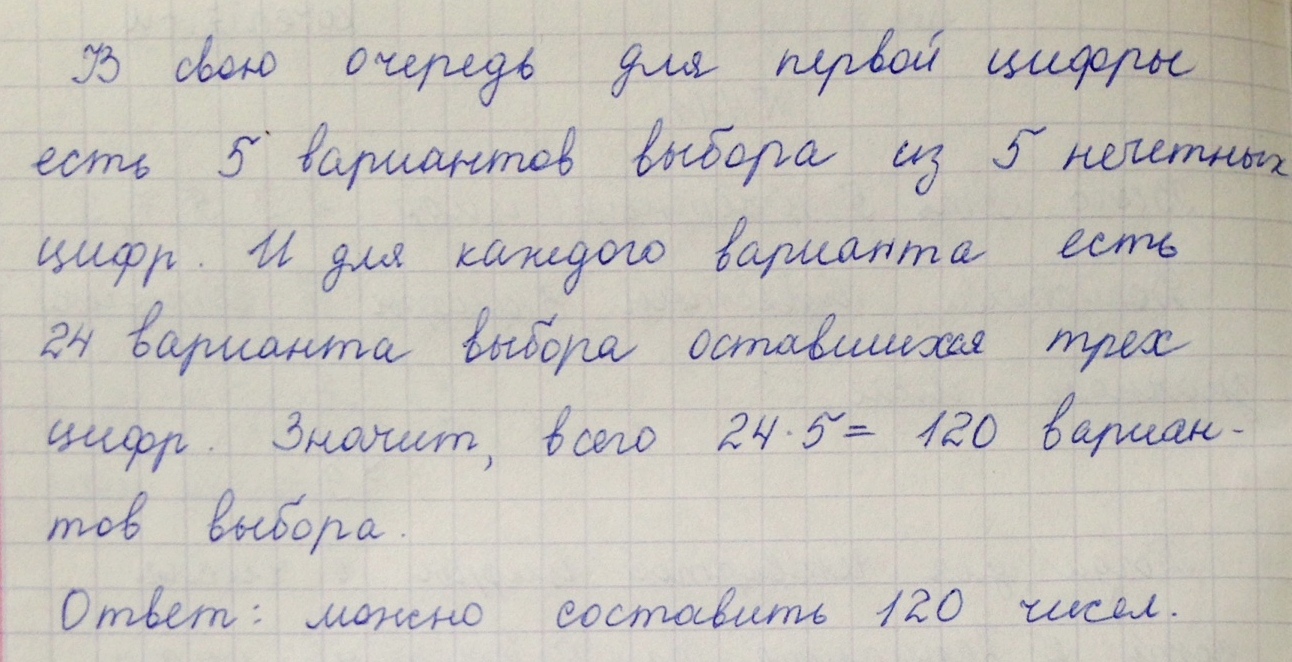 В свою очередь для первой цифры
есть 5 вариантов выбора из 5 нечетных
цифр. И для каждого варианта есть
24 варианта выбора оставшихся трех
цифр. Значит, всего 24·5= 120 вариан-
тов выбора.
Ответ: можно составить 120 чисел.